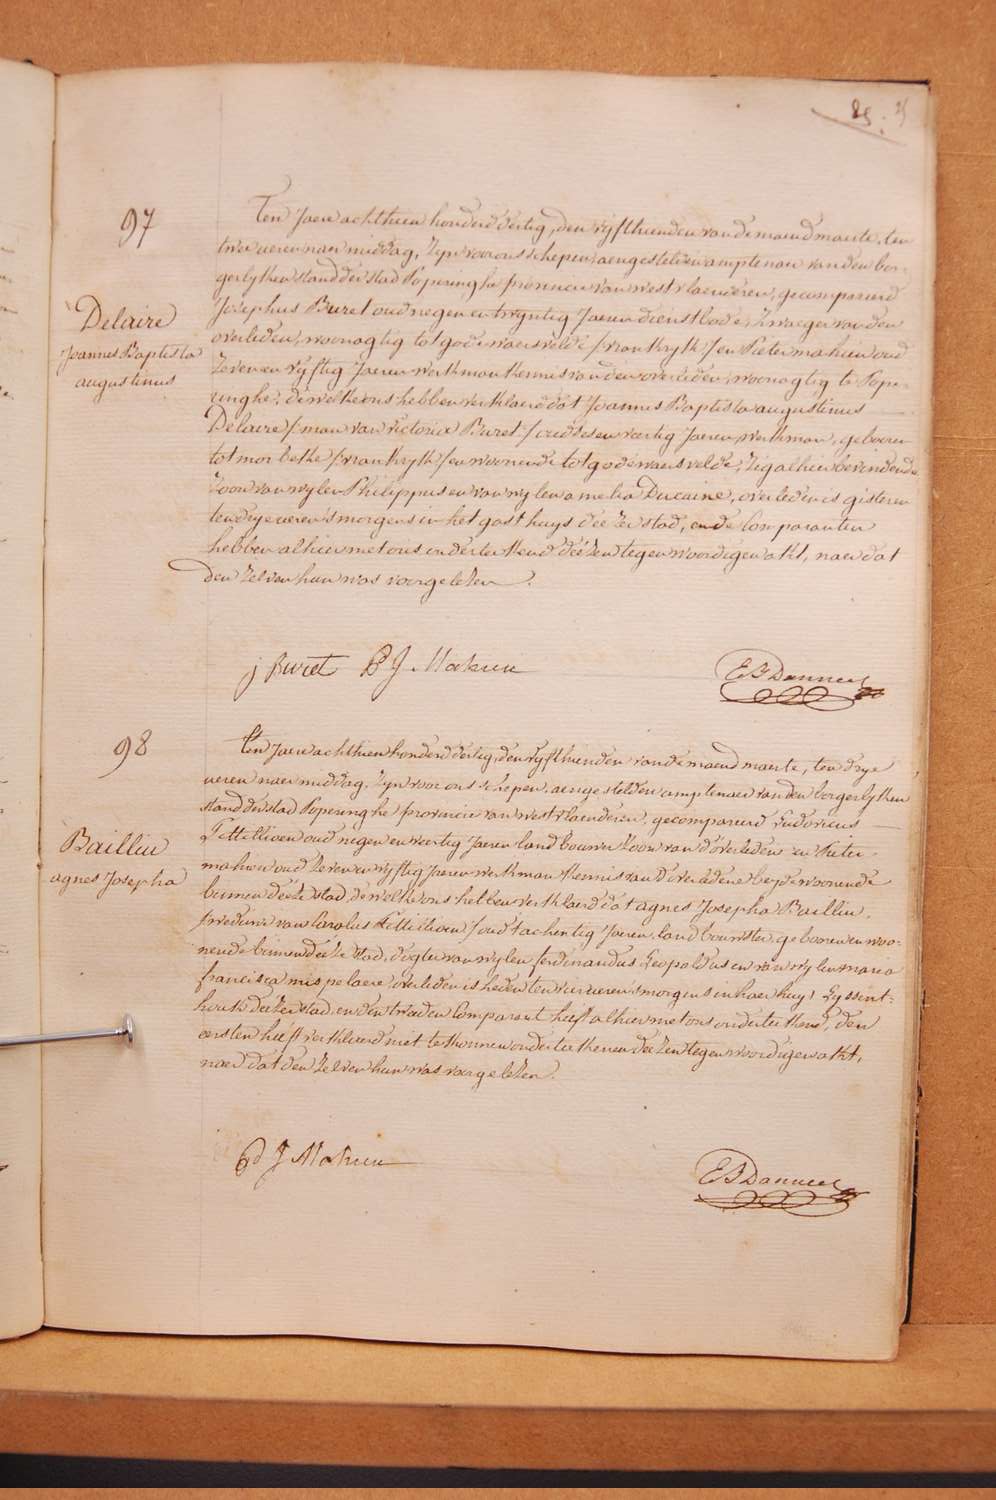 25.
97
Delaire
Joannes Baptista
augustinus
Ten Jaere achthien honderd dertig, den vyfthienden van de maend maerte, ten
twee ueren naer middag, zyn voor ons schepen, aengestelden amptenaer van den bor-
gerlyken stand der stad Poperinghe provincie van westvlaenderen, gecompareerd
Josephus Buret oud negen en twyntig Jaeren dienstbode, zwaeger van den
overleden, woonagtig tot godewaersvelde /:vrankryk:/ en Pieter mahieu oud
zeven en vyftig Jaeren werkman kennis van den overleden, woonagtig te Pope-
ringhe, dewelke ons hebben verklaerd dat Joannes Baptista augustinus
Delaire /:man van victoria Buret:/ oud en veertig Jaeren, werkman, geboren
tot morbeke /:vrankryk:/ en woonende tot godewaersvelde, zig alhier bevindende
zoon van wylen Philippus en van wylen amelia Ducaine, overleden is gisteren
ten dry ueren 's morgens in het gasthuys deezer stad, en de Comparanten
hebben alhier met ons onderteekend deézen tegenwoordigen akt, naer dat
den zelven hun was voorgelezen.
j Buret P J Mahieu
98
Bailliu
agnes Josepha
Ten Jaere achthien honderd dertig, den vyfthienden van de maend maerte, ten drye
ueren naer middag, zyn voor ons schepen, aengestelden amptenaer van den borgerlyken
stand der stad Poperinghe provincie van westvlaenderen, gecompareerd Ludovicus
oud negen en veertig Jaeren landbouwer zoon van d'overledene en Pieter
mahieu oud zeven en vyftig Jaeren werkman kennis van d'overledene beyde woonende
binnen deeze stad, dewelke ons hebben verklaerd dat agnes Josepha Bailliu,
/:weduwe van Carolus :/ oud tachentig Jaeren, landbouwster, geboren en woo-
nende binnen deeze stad, dogter van wylen ferdinandus Leopoldus en van wylen maria
francisca mispelaere, overleden is heden ten vier ueren 's morgens in haer huys
houk deezer stad, en den tweeden Comparant heeft alhier met ons onderteekend, den
eersten heeft verklaerd niet te konnen onderteekenen deezen tegenwoordigen akt,
naer dat den zelven hun was voorgelezen.
P J Mahieu